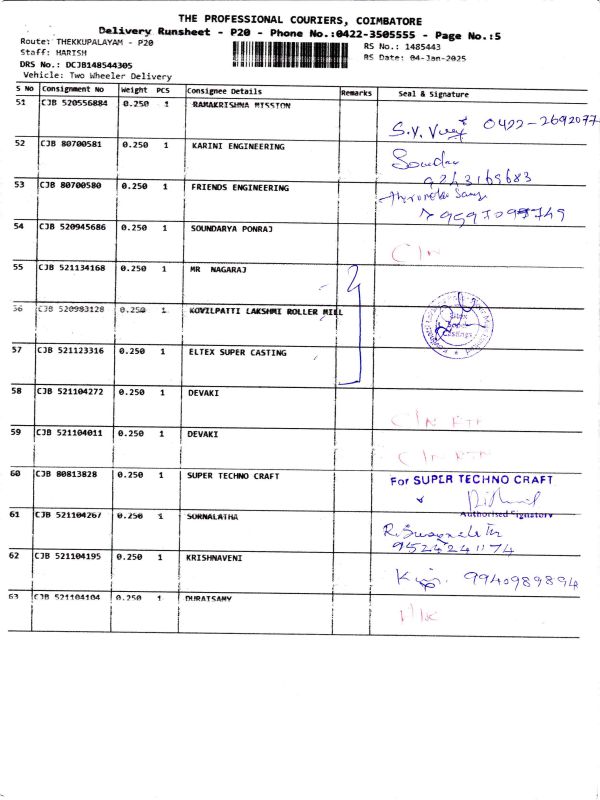 THE PROFESSIONAL COURIERS, COIMBATORE
Delivery Runsheet - P20 - Phone No.:0422-3505555 - Page No.:5
Route: THEKKUPALAYAM - P20
Staff: HARISH
RS No.: 1485443
DRS No.: DCJB148544305
RS Date: 04-Jan-2025
Vehicle: Two Wheeler Delivery
S No Consignment No Weight PCS Consignee Details Remarks Seal & Signature
51 CJB 520556884 0.250 1 RAMAKRISHNA MISSION 0422-2692077
52 CJB 80700581 0.250 1 KARINI ENGINEERING
9243169683
53 CJB 80700580 0.250 1 FRIENDS ENGINEERING
54 CJB 520945686 0.250 1 SOUNDARYA PONRAJ
55 CJB 521134168 0.250 1 MR NAGARAJ
56 CJB 520983128 0.250 1 KOVILPATTI LAKSHMI ROLLER MILL
Eltex
Super
Castings
57 CJB 521123316 0.250 1 ELTEX SUPER CASTING
58 CJB 521104272 0.250 1 DEVAKI
59 CJB 521104011 0.250 1 DEVAKI
60 CJB 80813828 0.250 1 SUPER TECHNO CRAFT For SUPER TECHNO CRAFT
Authorised Signatory
61 CJB 521104267 0.250 1 SORNALATHA
62 CJB 521104195 0.250 1 KRISHNAVENI 9940989894
63 CJB 521104104 0.250 1 DURAISAMY